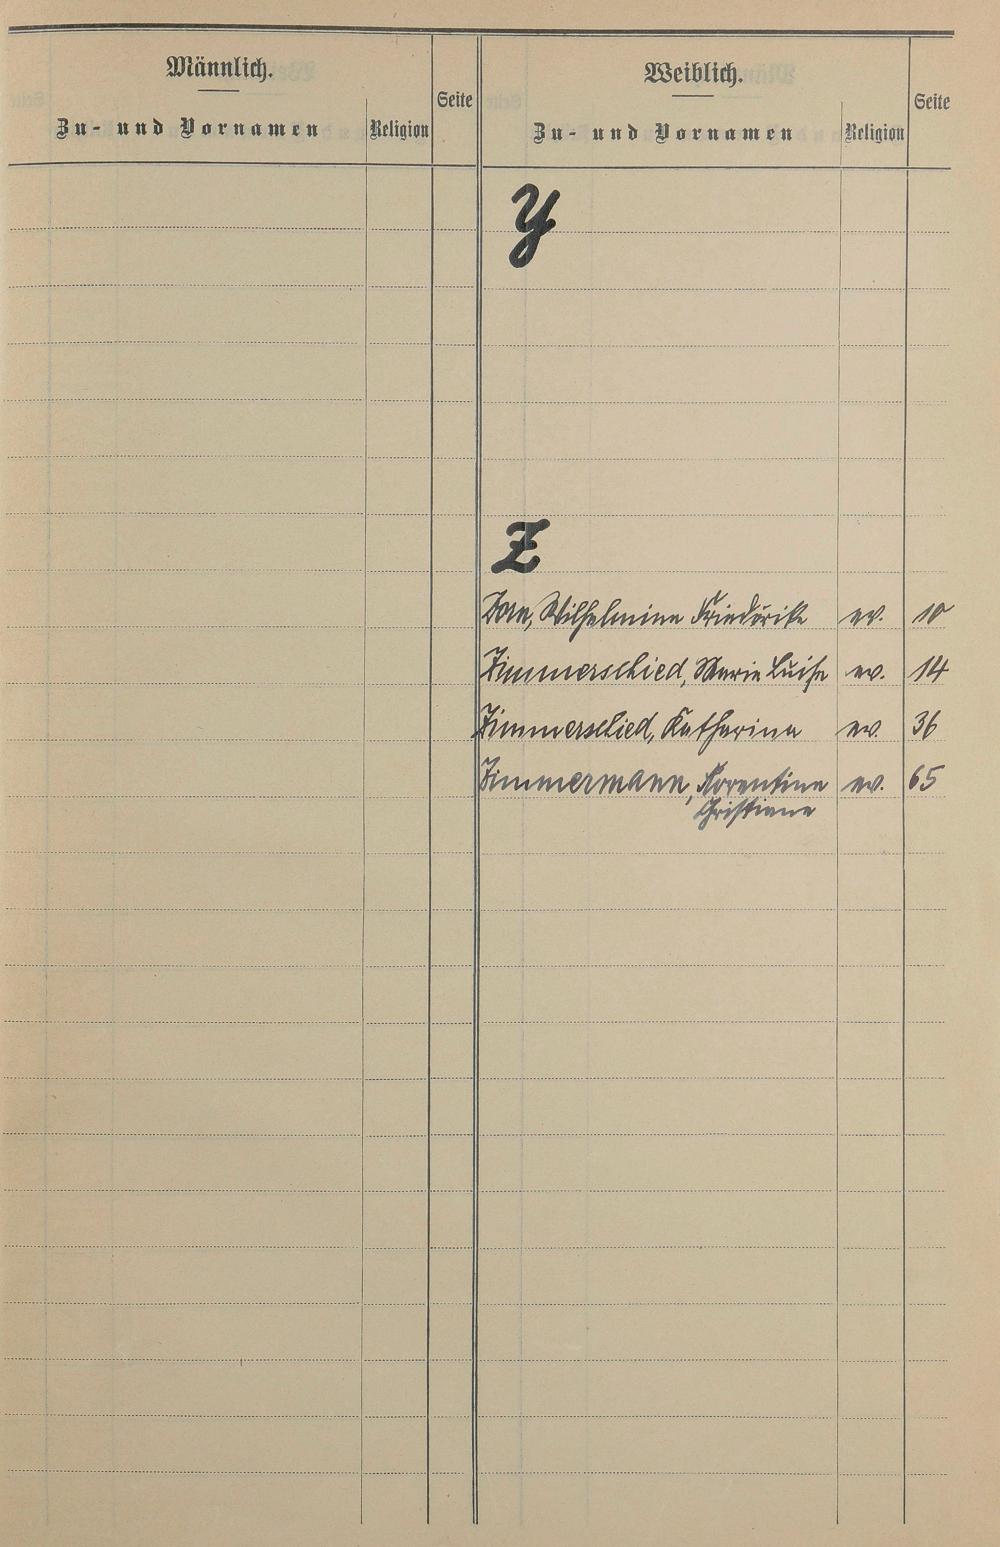 Männlich.
Zu- und Vornamen
Religion
Seite
Weiblich.
Zu- und Vornamen
Religion
Seite
Y
Z
Zorn, Wilhelmine Friedörike ev. 10
Zimmerschied, Marie Luise ev. 14
Zimmerschied, Katharina ev. 36
Zimmermann, Florentine ev. 65
Christiane